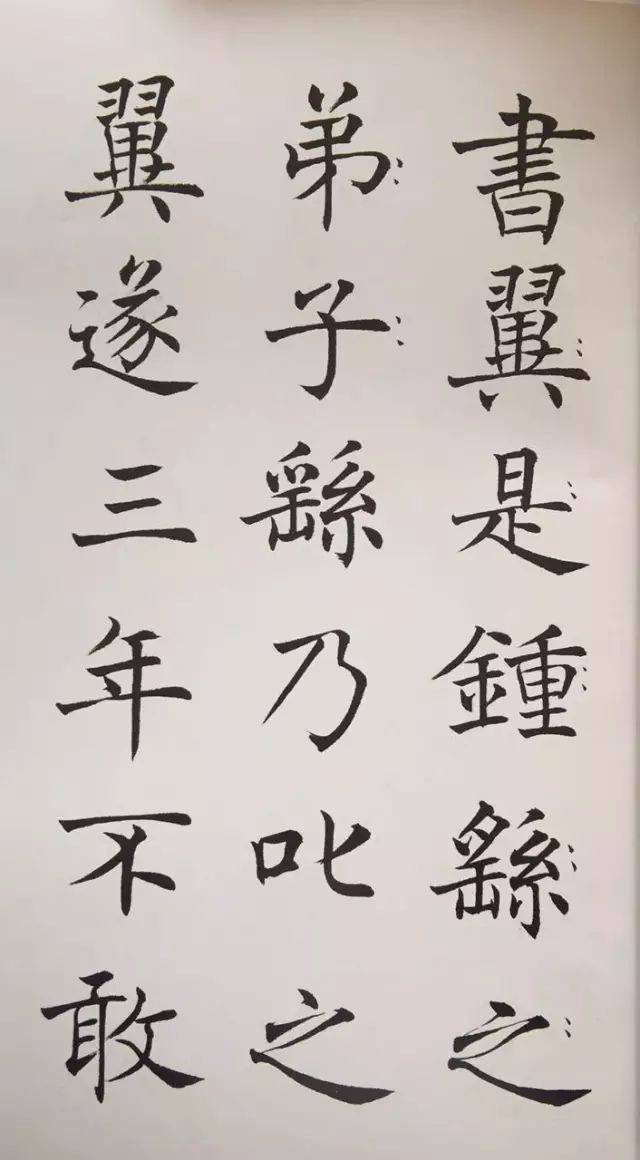 書翼是鍾繇之
弟子繇乃叱之
翼遂三年不敢